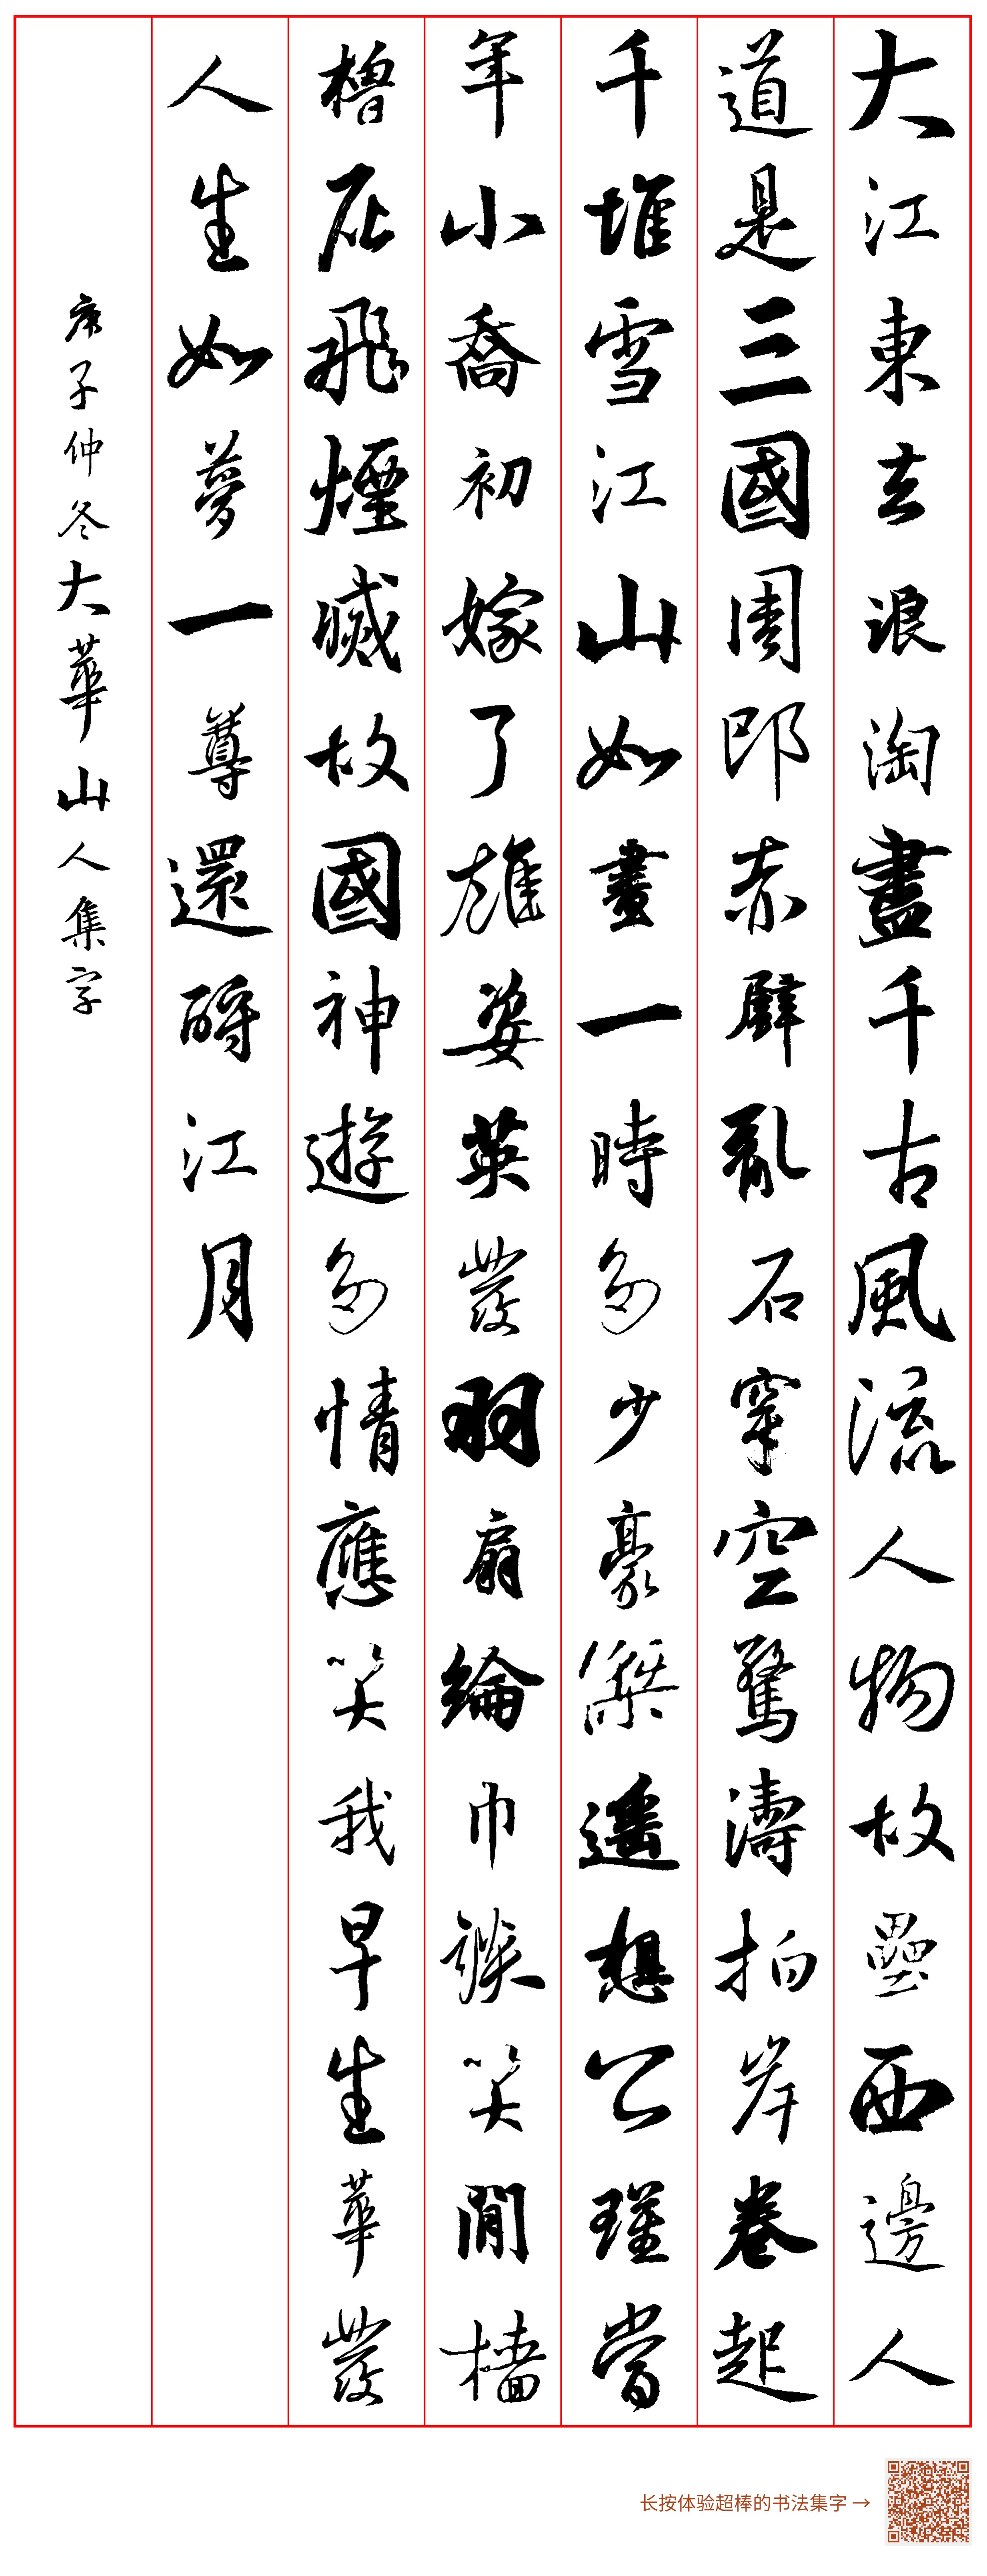 大江東去浪淘盡千古風流人物故壘西邊人
道是三國周郎赤壁亂石穿空驚濤拍岸卷起
千堆雪江山如畫一時多少豪傑遙想公瑾當
年小喬初嫁了雄姿英發羽扇綸巾談笑間檣
櫓灰飛煙滅故國神遊多情應笑我早生華發
人生如夢一尊還酹江月
庚子仲冬大華山人集字
长按体验超棒的书法集字→